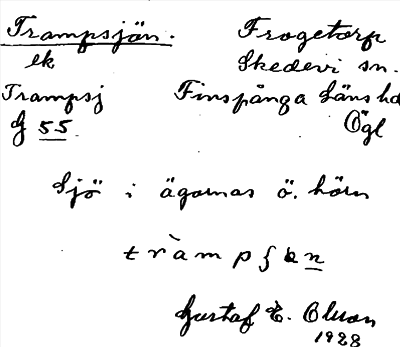 Trampsjön. Frogetorp
ek Skedevi sn.
Trampsj Finspånga Läns hd
G 55 Ögl
Sjö i ägornas ö. hörn
Gustaf E. Olsson
1928